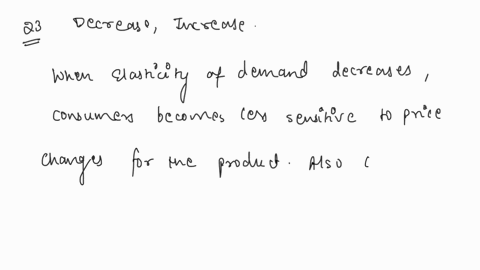 23 Decrease, Increase.
When Elasticity of demand decreases,
consumers becomes less sensitive to price
changes for the product. Also (